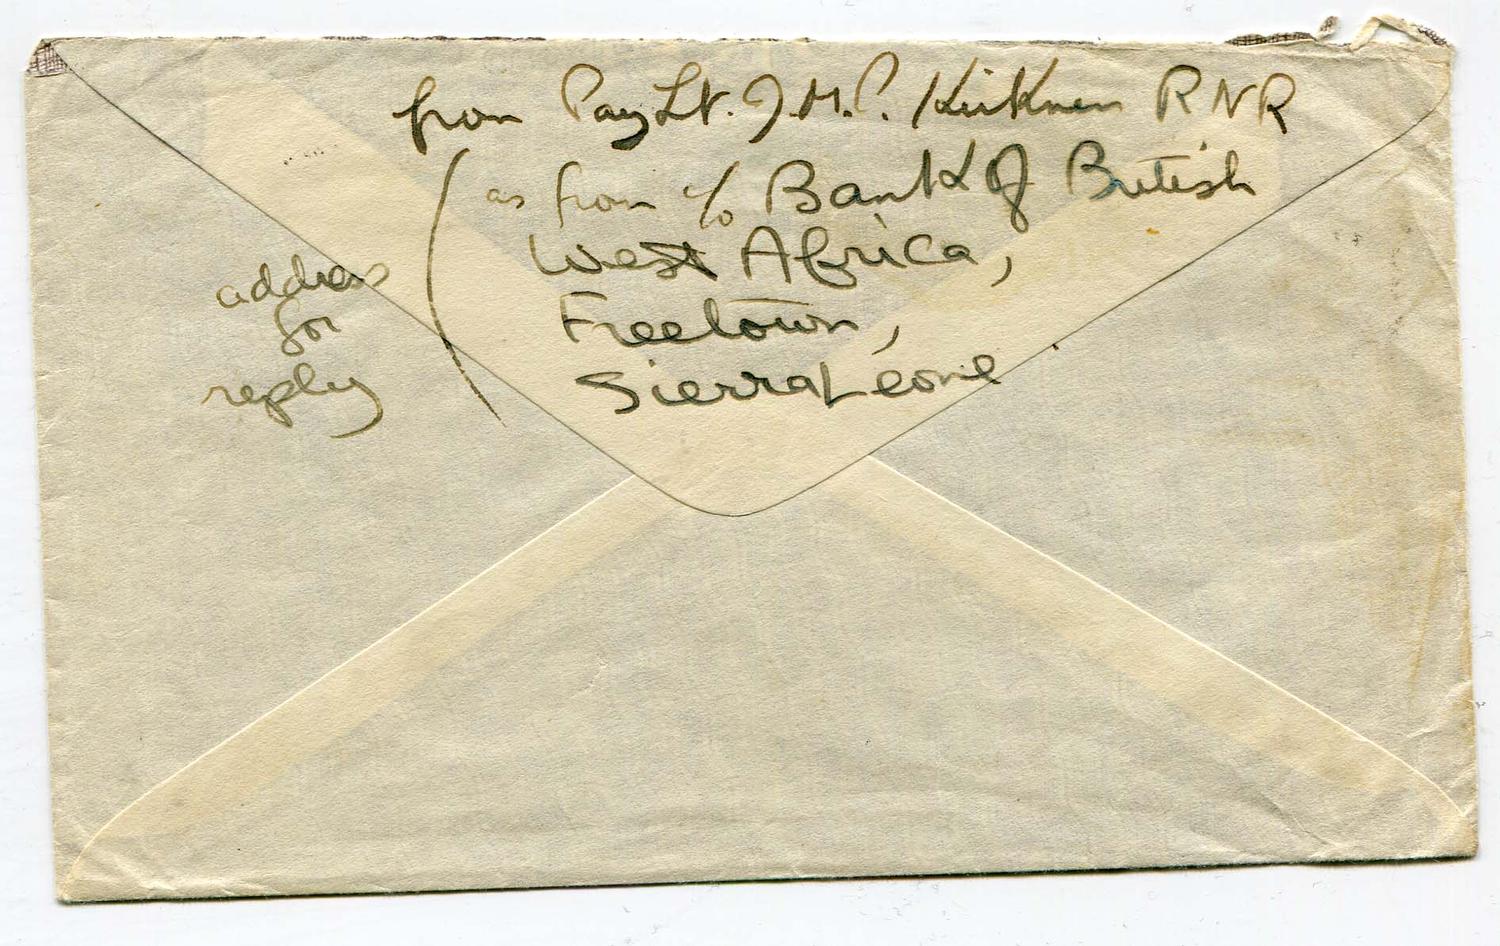 from Pay Lt. J.M.P. Kirkman RNR
as from c/o Bank of British
West Africa,
Freetown,
Sierra Leone
address
for
reply